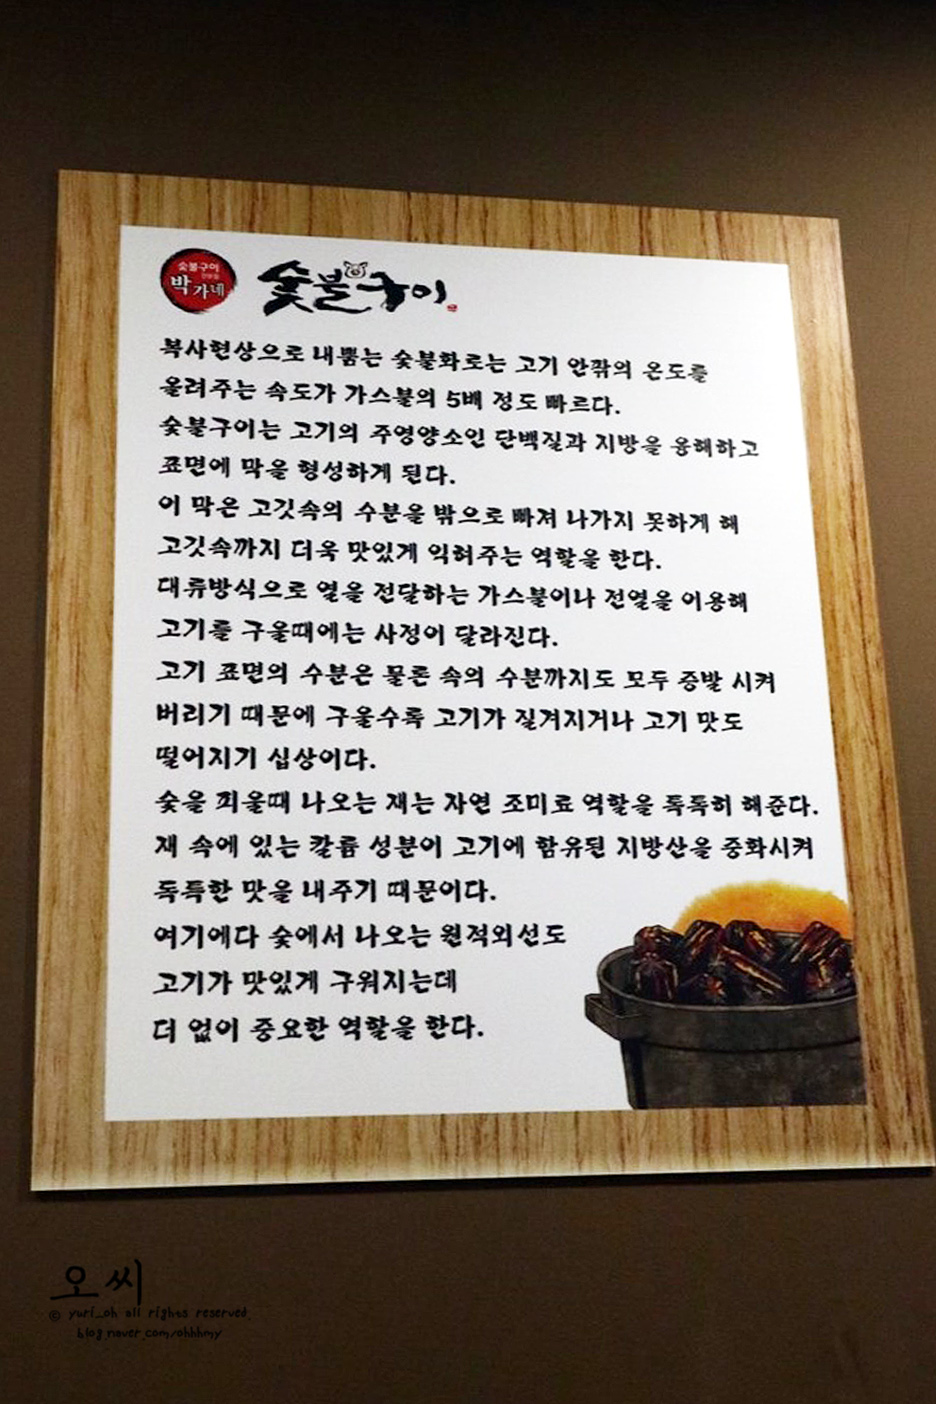 숯불구이
박가네
숯불구이
복사현상으로 내뿜는 숯불화로는 고기 안팎의 온도를
올려주는 속도가 가스불의 5배 정도 빠르다.
숯불구이는 고기의 주영양소인 단백질과 지방을 융해하고
표면에 막을 형성하게 된다.
이 막은 고깃속의 수분을 밖으로 빠져 나가지 못하게 해
고깃속까지 더욱 맛있게 익혀주는 역할을 한다.
대류방식으로 열을 전달하는 가스불이나 전열을 이용해
고기를 구울때에는 사정이 달라진다.
고기 표면의 수분은 물론 속의 수분까지도 모두 증발 시켜
버리기 때문에 구울수록 고기가 질겨지거나 고기 맛도
떨어지기 십상이다.
숯을 피울때 나오는 재는 자연 조미료 역할을 톡톡히 해준다.
재 속에 있는 칼륨 성분이 고기에 함유된 지방산을 중화시켜
독특한 맛을 내주기 때문이다.
여기에다 숯에서 나오는 원적외선도
고기가 맛있게 구워지는데
더 없이 중요한 역할을 한다.
오씨
© yuri_oh all rights reserved.
blog.naver.com/ohhhmy